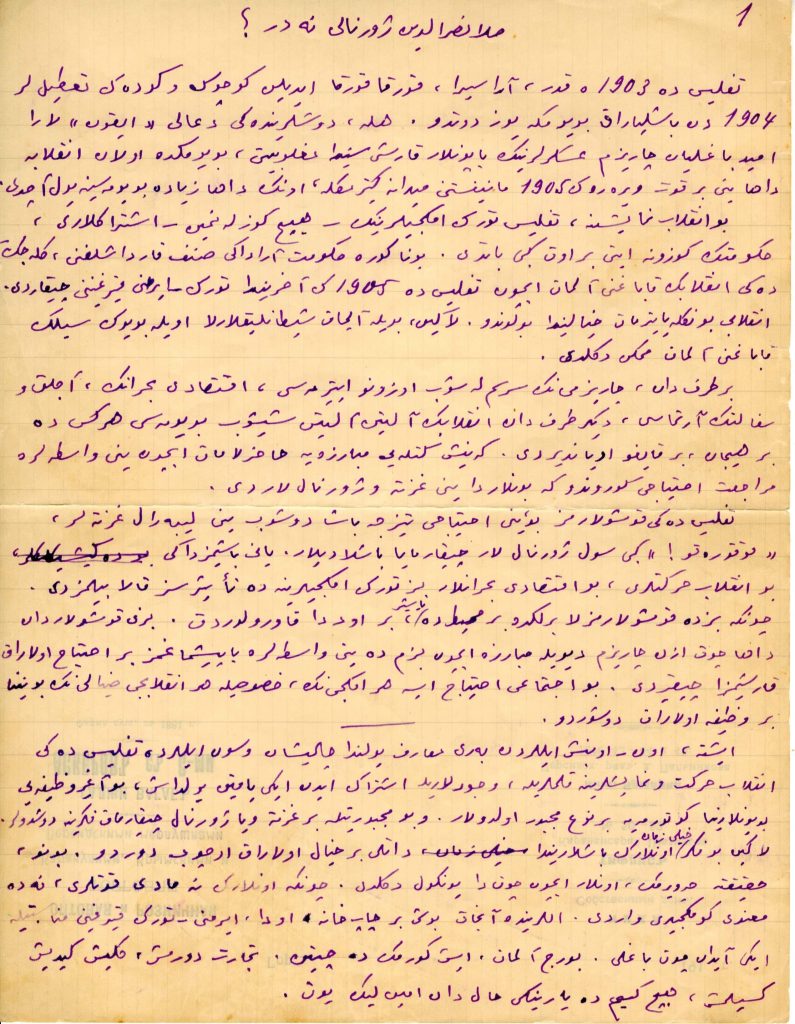 1
ملا نصرالدین ژورنالی نه در ؟
تفلیس ده 1903 ه قدر ، آرا سیرا ، قورقا قورقا ایدیلن کوچوک و کوده ک تعطیل لر
1904 دن باشلیاراق بویومکه یوز دوتدو . هله ، دوشلرینده کی دعالی « ایقون » لارا
امید باغلیان چاریزم عسکرلرینک یاپونلار قارشی سندا مغلوبیتی ، بویومکده اولان انقلابه
داها ینی بر قوت ویره روک 1905 مانیفستنی میدانه کتیرمکله ، اونک داها زیاده بویومه سینه یول آچدی.
بو انقلاب نمایشنه ، تفلیس تورک امکچیلرینک – هیچ کوزله نمین – اشتراکلاری ،
حکومتک کوزونه ایتی بر اوق کبی باتدی . بونا کوره حکومت آراداکی صنف قارداشلغنی ، کله جک
ده کی انقلابک قاباغنی آلمان ایچون تفلیس ده 1905 کی آخریندا تورک – ایرمنی قیرغینی چیقاردی.
انقلابی بونکله یاتیرمان خیالیندا بولوندو . لاکین ، بویله آلچاق شیطانلیقلارلا اویله بویوک سیلک
قاباغنی آلمان ممکن دکلدی .
بر طرف دان ، چاریزمی نک سریع له شوب اوزونو ایتیرمه سی ، اقتصادی بحرانک ، آجلق و
سفالتک آرتماسی ، دیکر طرف دان انقلابک آلتدن آلتدن شیشوب بویومه سی هرکس ده
بر هیجان ، بر قایغو اویاندیردی . کنیش کتله یی مبارزویه حاضرلامان ایچون ینی واسطه لره
مراجعت احتیاجی کوروندو که بونلاردا ینی غزته و ژورنال لار دی .
تفلیس ده کی قونشولارمز بو یکی احتیاجی تیزجه باشا دوشوب ینی لیبه رال غزته لر ،
کبی سول ژورنال لار چیقارمایا باشلادیلار . یانی باشیمزداکی
بو انقلاب حرکتلری ، بو اقتصادی بحرانلار بز تورک امکچیلرینه ده تأثیرسز قالا بیلمزدی .
چونکه بزده قونشولارمزلا برلکده بر محیط ده ، بر اوددا قاورولوردق . بزی قونشولاردان
داها چوق ازن چاریزم دیویله مبارزه ایچون بزم ده ینی واسطه لره یاپیشماغمز بر احتیاج اولاراق
قارشیمزا چیقیردی . بو اجتماعی احتیاج ایسه هر امکچی نک ، خصوصیله هر انقلابچی ضیالی نک بوینینا
بر وظیفه اولاراق دوشوردو .
ایشته ، اون – اونبش ایللردن بری معارف یولندا چالیشان و سون ایللرده تفلیس ده کی
انقلاب حرکت و نمایشلرینه قلملریله ، وجودلاریله اشتراک ایدن ایکی یاقین یولداش ، بو آغیر وظیفه یی
بویونلارینا کوتورمه یه بر نوع مجبور اولدولار . و بو مجبوریتله بر غزته و یا ژورنال چیقارمان فکرینه دوشدولر.
لاکین بو فکر اونلارک باشلاریندا خیلی زمان ، داتلی بر خیال اولاراق اوچوب دوردو . بونو ،
حقیقته چویرمک ، اونلار ایچون چوق دا یونکول دکلدی . چونکه اونلارک نه مادی قوتلری ، نه ده
معنوی کومکچیلری واردی . اللرینده آنجاق بوش بر چاپ خانه ، اودا ، ایرمنی – تورک قیرقینی مناسبتیله
ایکی آیدان چوق باغلی . بورج آلمان ، ایش کورمک ده چتین . تجارت دورمش ، کلیش کیدیش
کسیلمش ، هیچ کیم ده یارینکی حال دان امین لیک یوق .